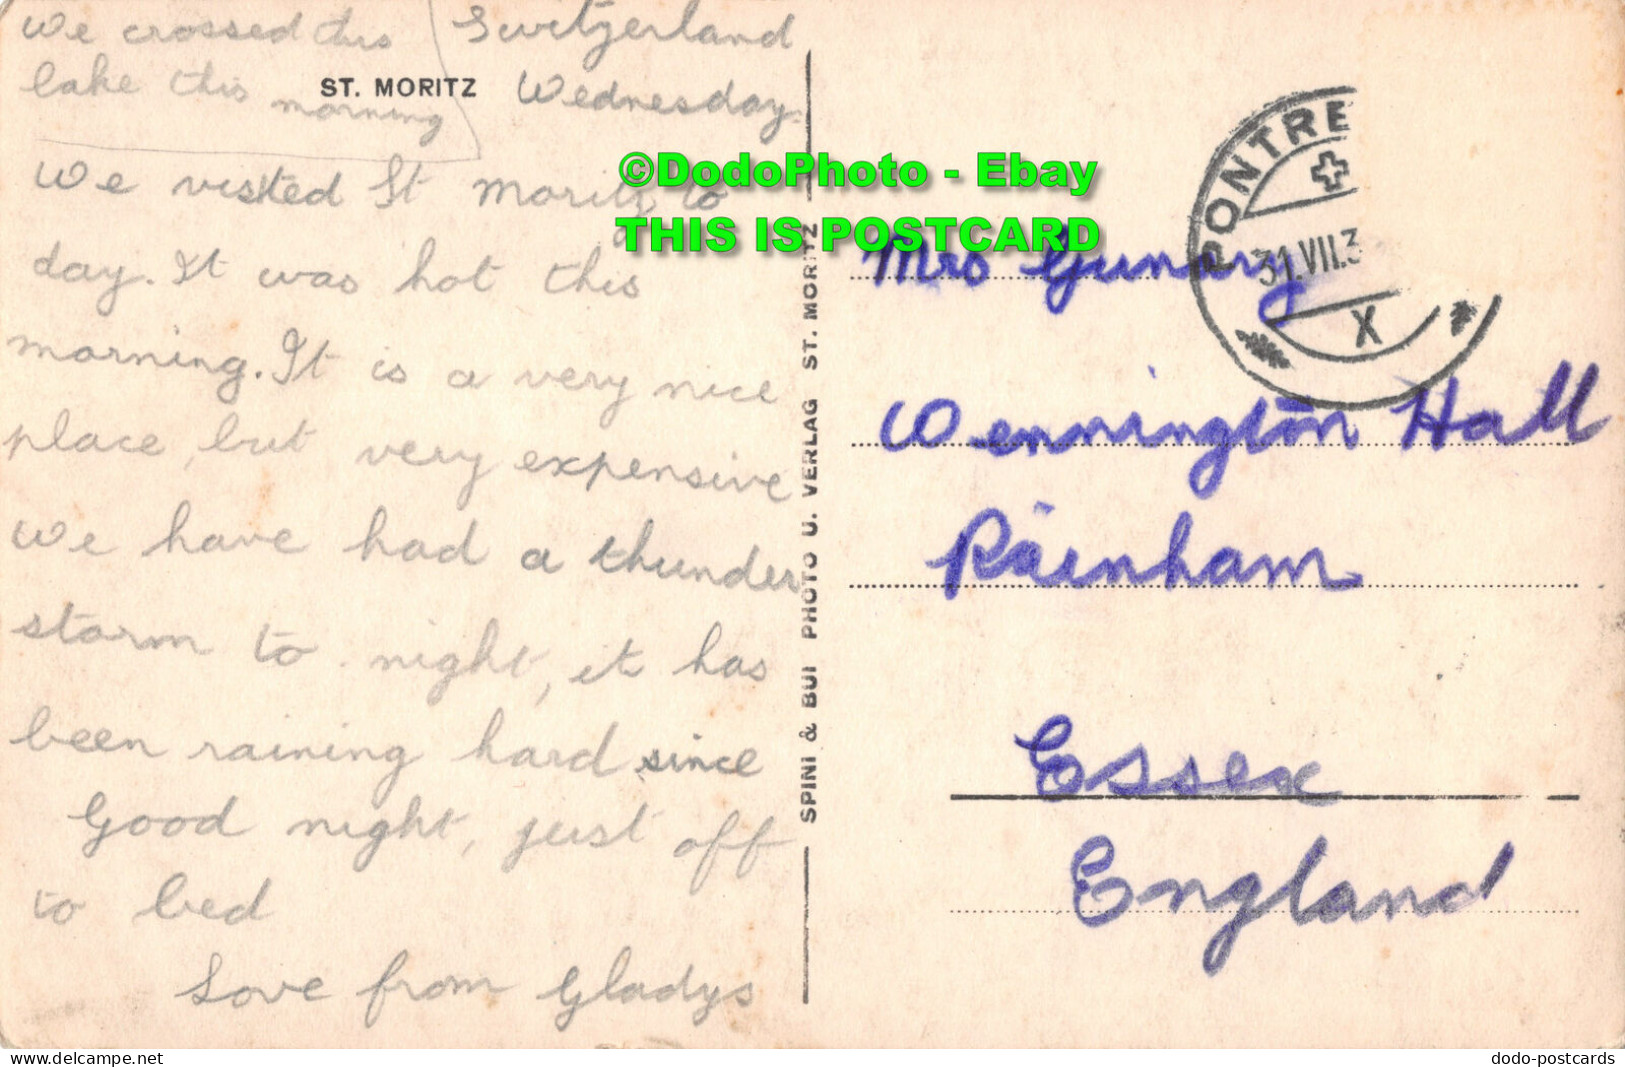 We crossed this
lake this
morning
Switzerland
Wednesday.
ST. MORITZ
We visited St Moritz to
day. It was hot this
morning. It is a very nice
place, but very expensive
We have had a thunder
storm to night, it has
been raining hard since
Good night, just off
to bed
Love from Gladys
SPINI & BUI PHOTO U. VERLAG ST. MORITZ
©DodoPhoto - Ebay
THIS IS POSTCARD
PONTRE
31.VII.3
X
Mrs Gunary
Wennington Hall
Rainham
Essex
England
Delcampe.net
dodo-postcards